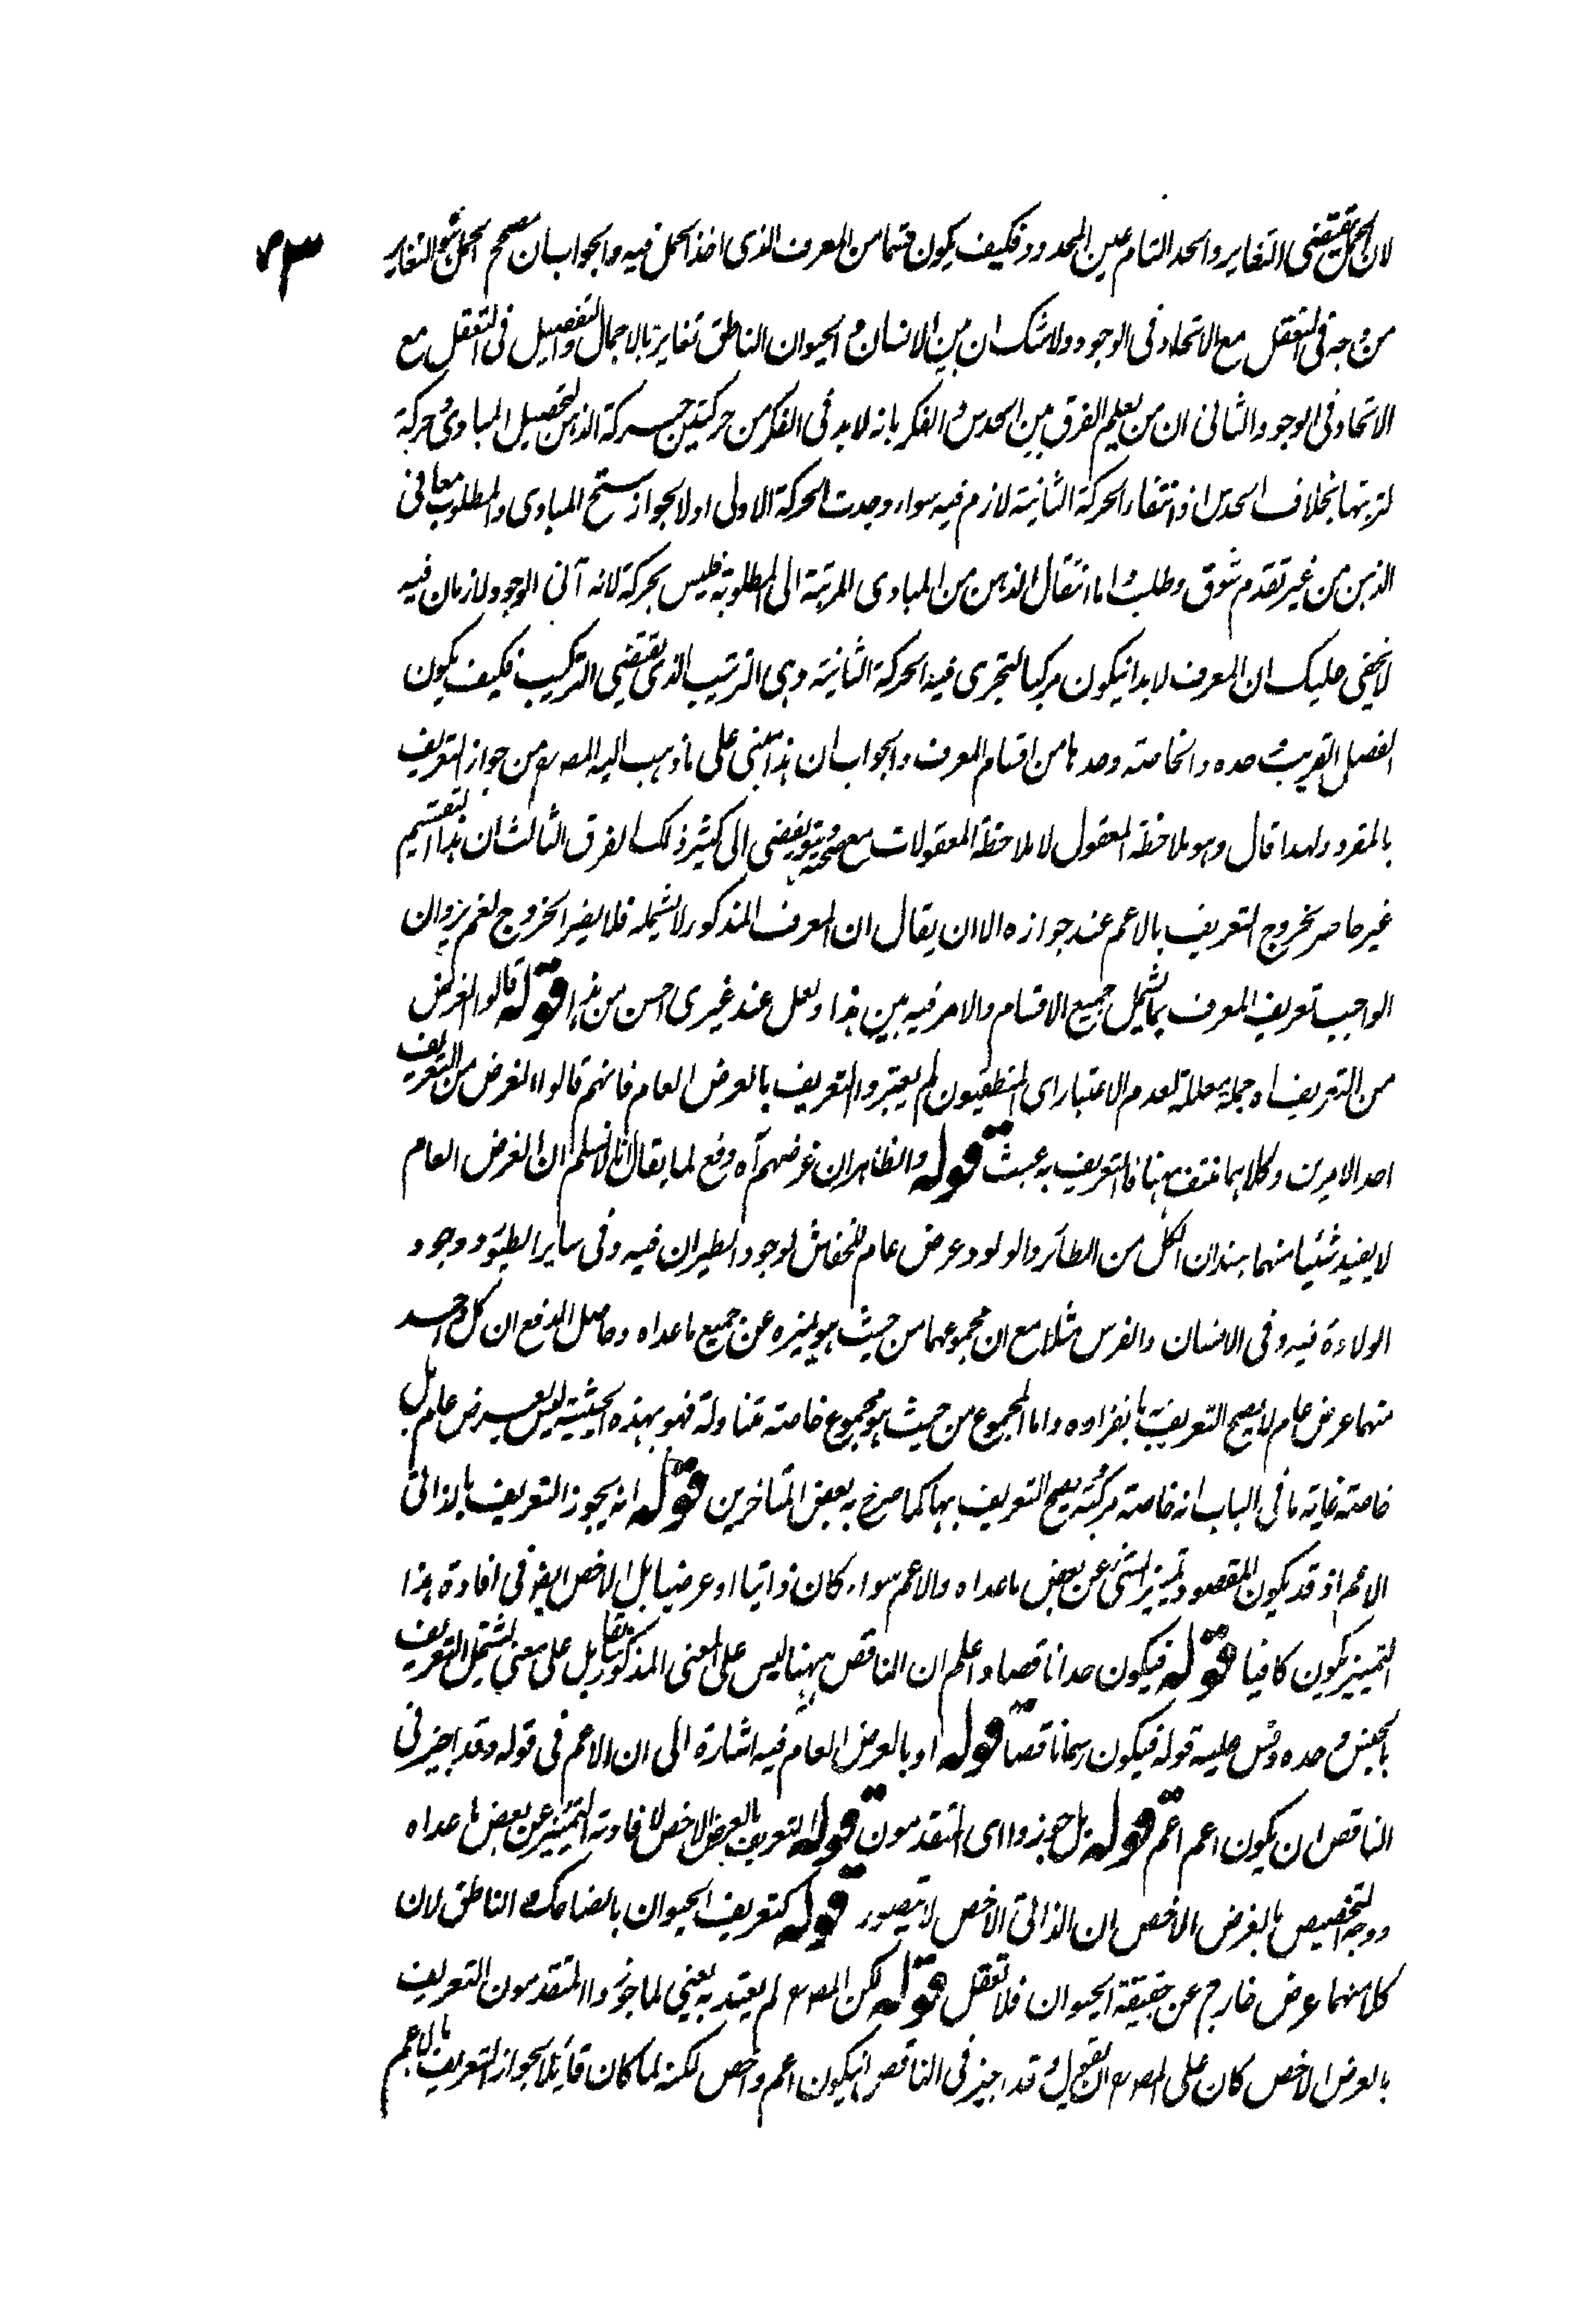 لان الحمل يقتضى التغاير والحد التام عين المحدود فكيف يكون قسما من المعرف الذى اخذ الحمل فيه والجواب ان مصحح الحمل هو التغاير
من وجه فى التعقل مع الاتحاد فى الوجود ولا شك ان بين الانسان والحيوان الناطق تغاير بالاجمال والتفصيل فى التعقل مع
الاتحاد فى الوجود والثانى ان من يعلم الفرق بين الحدس والفكر بانه لابد فى الفكر من حركتين حركة الذهن لتحصيل المبادى وحركة
لترتبها بخلاف الحدس اذ انتفاء الحركة الثانية لازم فيه سواء وجدت الحركة الاولى اولا لجواز سنح المبادى والمطلوب معا فى
الذهن من غير تقدم شوق وطلب واما انتقال الذهن من المبادى المرتبة الى المطلوبة فليس بحركة لانه آنى الوجود لا زمان فيه
لا يخفى عليك ان المعرف لابد ان يكون مركبا لتجرى فيه الحركة الثانية وهى الترتيب الذى يقتضى التركيب فكيف يكون
الفصل القريب وحده والخاصة وحدها من اقسام المعرف والجواب ان هذا مبنى على ما ذهب اليه المصـ من جواز التعريف
بالمفرد ولهذا قال وهو ملاحظة المعقول لا ملاحظة المعقولات مع يفضى الى كثير ذلك الفرق الثالث ان هذا التقسيم
غير حاصر لخروج التعريف بالاعم عند جوازه الا ان يقال ان المعرف المذكور لا يشمله فلا يضر الخروج نعم يرد ان
الواجب تعريف المعرف بما يشمل جميع الاقسام والامر فيه هين هذا ولعل عند غيرى احسن من هذا قوله قالوا الغرض
من التعريف اه جملة معللة لعدم الاعتبار اى المنطقيون لم يعتبروا التعريف بالعرض العام فانهم قالوا الغرض من التعريف
احد الامرين وكلاهما منتف ههنا فالتعريف به عبث قوله والظاهر ان غرضهم آه دفع لما يقال انا لا نسلم ان العرض العام
لا يفيد شيئا منهما بسند ان الكل من الطائر والولود عرض عام للخفاش لوجود الطيران فيه وفى ساير الطيور ووجود
الولادة فيه وفى الانسان والفرس مثلا مع ان مجموعهما من حيث هو يميزه عن جميع ماعداه وحاصل الدفع ان كل واحد
منهما عرض عام لا يصح التعريف به بانفراده واما المجموع من حيث هو مجموع خاصة متناولة فهو بهذه الحيثية ليس بعرض عام بل
خاصة غاية ما فى الباب انه خاصة مركبة يصح التعريف بها كما صرح به بعض المتاخرين قوله انه يجوز التعريف بالذاتى
الاعم اذ قد يكون المقصود تميز الشئ عن بعض ماعداه والاعم سواء كان ذاتيا او عرضيا بل الاخص ايضا فى افادة هذا
التميز يكون كافيا قوله فيكون حدا ناقصا واعلم ان الناقص ههنا ليس على المعنى المذكور سابقا بل على معنى يشتمل التعريف
بالجنس وحده وقس عليه قوله فيكون رسما ناقصا قوله او بالعرض العام فيه اشارة الى ان الاعم فى قوله وقد اجيز فى
الناقص ان يكون اعم اعم قوله بل جوزوا اى المتقدمون قوله التعريف بالعرض الاخص لافادته التميز عن بعض ماعداه
ووجه التخصيص بالعرض الاخص ان الذاتى الاخص لا يتصور قوله كتعريف الحيوان بالضاحك الناطق لان
كلا منهما عرض خارج عن حقيقة الحيوان فلا تعقل قوله لكن المصـ لم يعتد به يعنى لما جوزوا المتقدمون التعريف
بالعرض الاخص كان على المصـ ان يقول وقد اجيز فى الناقص ان يكون اعم واخص لكنه لما كان قائلا بجواز التعريف بالاعم